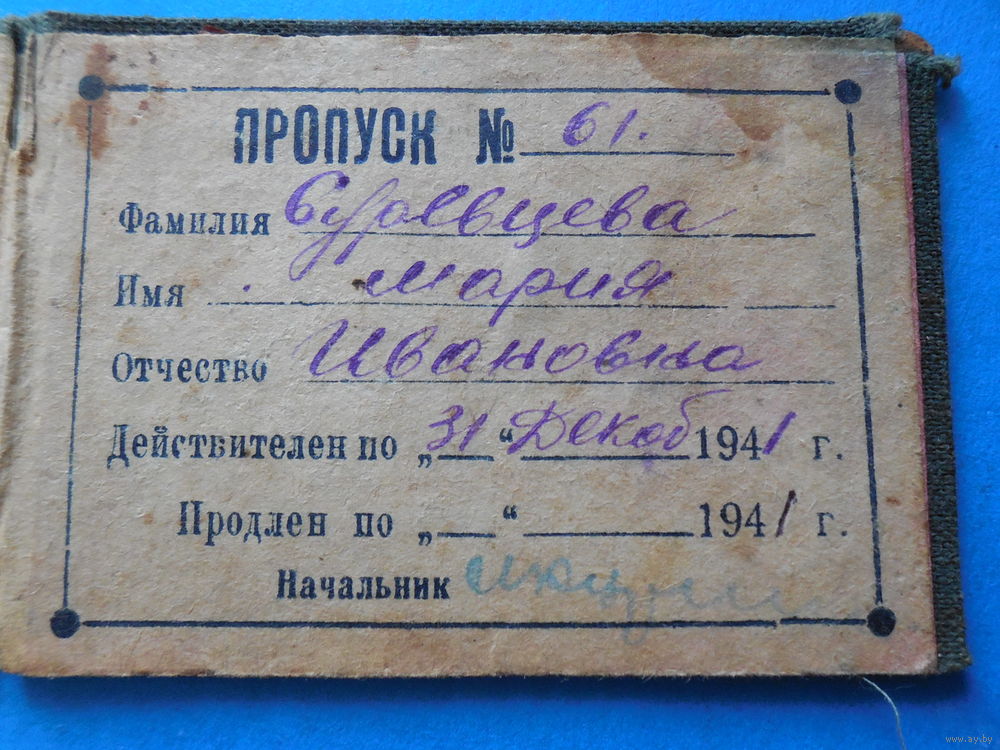 ПРОПУСК № 61.
Фамилия
Имя Мария
Отчество Ивановна
Действителен по „31“ Декаб 1941 г.
Продлен по „ “ 1941 г.
Начальник
www.ay.by